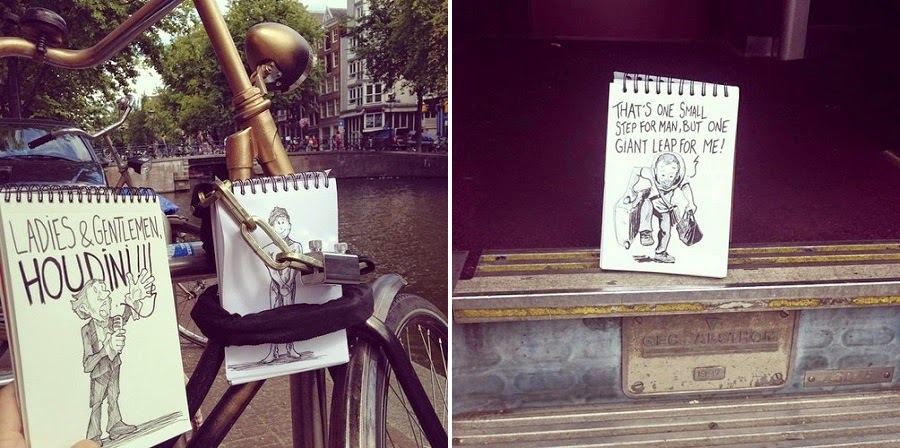 LADIES & GENTLEMEN,
HOUDINI!!!
THAT'S ONE SMALL
STEP FOR MAN, BUT ONE
GIANT LEAP FOR ME!
GEC ALSTHOM